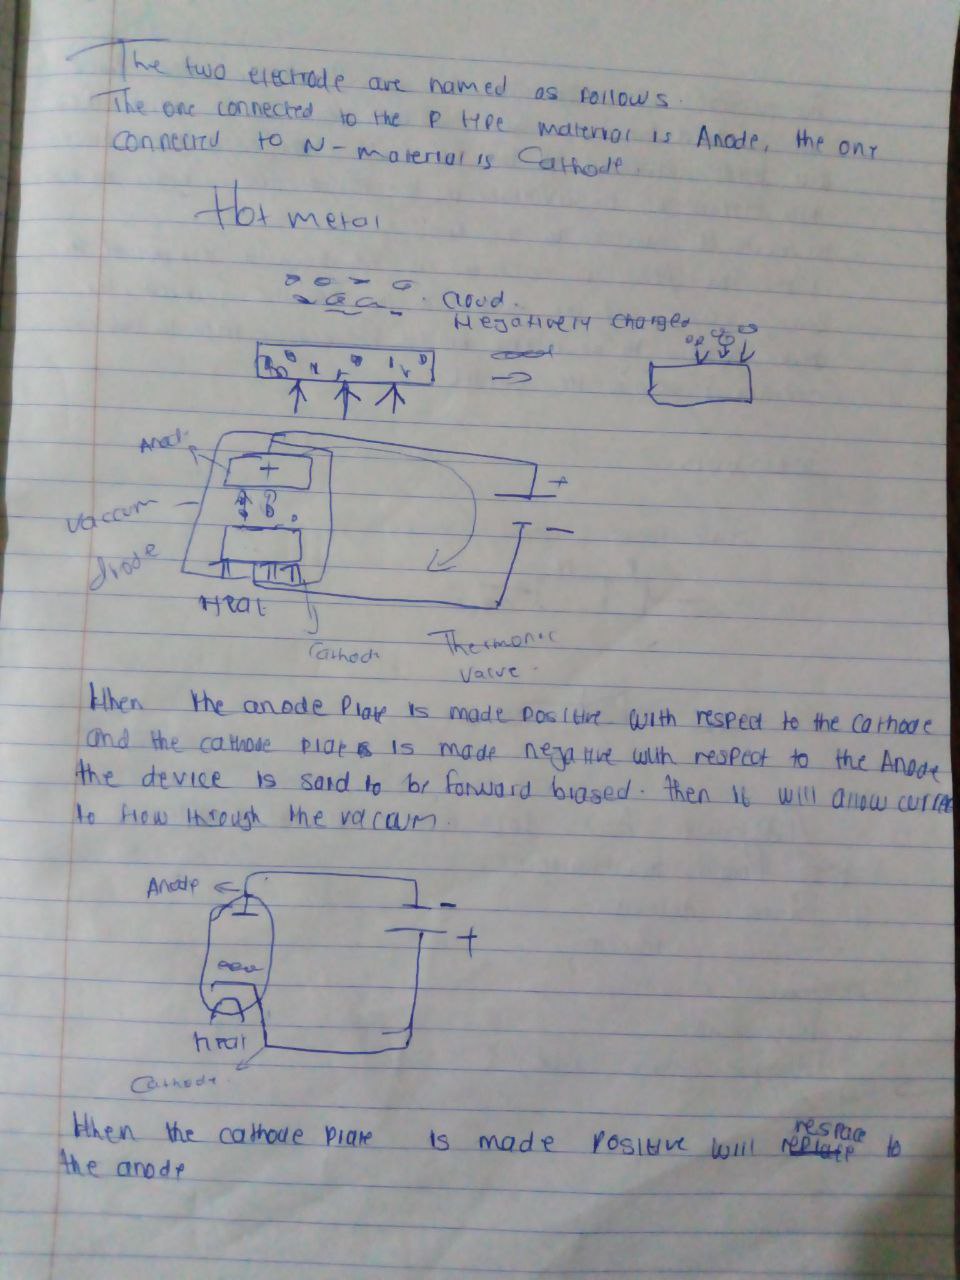 The two electrode are named as follows.
The one connected to the P type material is Anode, the one
connected to N-material is Cathode.
Hot metal
Cloud.
Negatively charged
Anod
+
+
Vaccum
-
diode
Heat
Cathode
Thermonic
Valve
When the anode Plate is made positive with respect to the cathode
and the cathode plate is made negative with respect to the Anode
the device is said to be forward biased. then it will allow curre
to flow through the vaccum.
Anode
-
+
heat
Cathode.
When the cathode plate is made positive will respace to
the anode